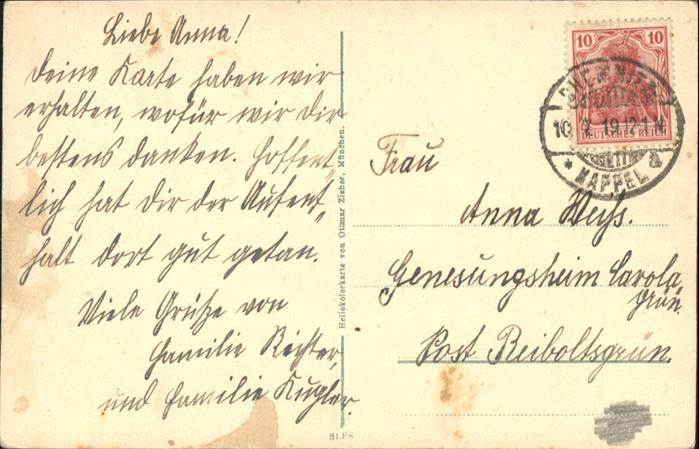 Liebe Anna!
Deine Karte haben wir
erhalten, wofür wir Dir
bestens danken. Hoffent-
lich hat Dir der Aufent-
halt dort gut getan.
Viele Grüße von
Familie Richter,
und Familie Kugler.
Heliokolorkarte von Ottmar Zieher, München.
10 10
DEUTSCHES REICH
CHEMNITZ
10. 19 12-1 N
KAPPEL a
Frau
Anna Weiß.
Genesungsheim Carola-
grün.
Post Reiboltsgrün.